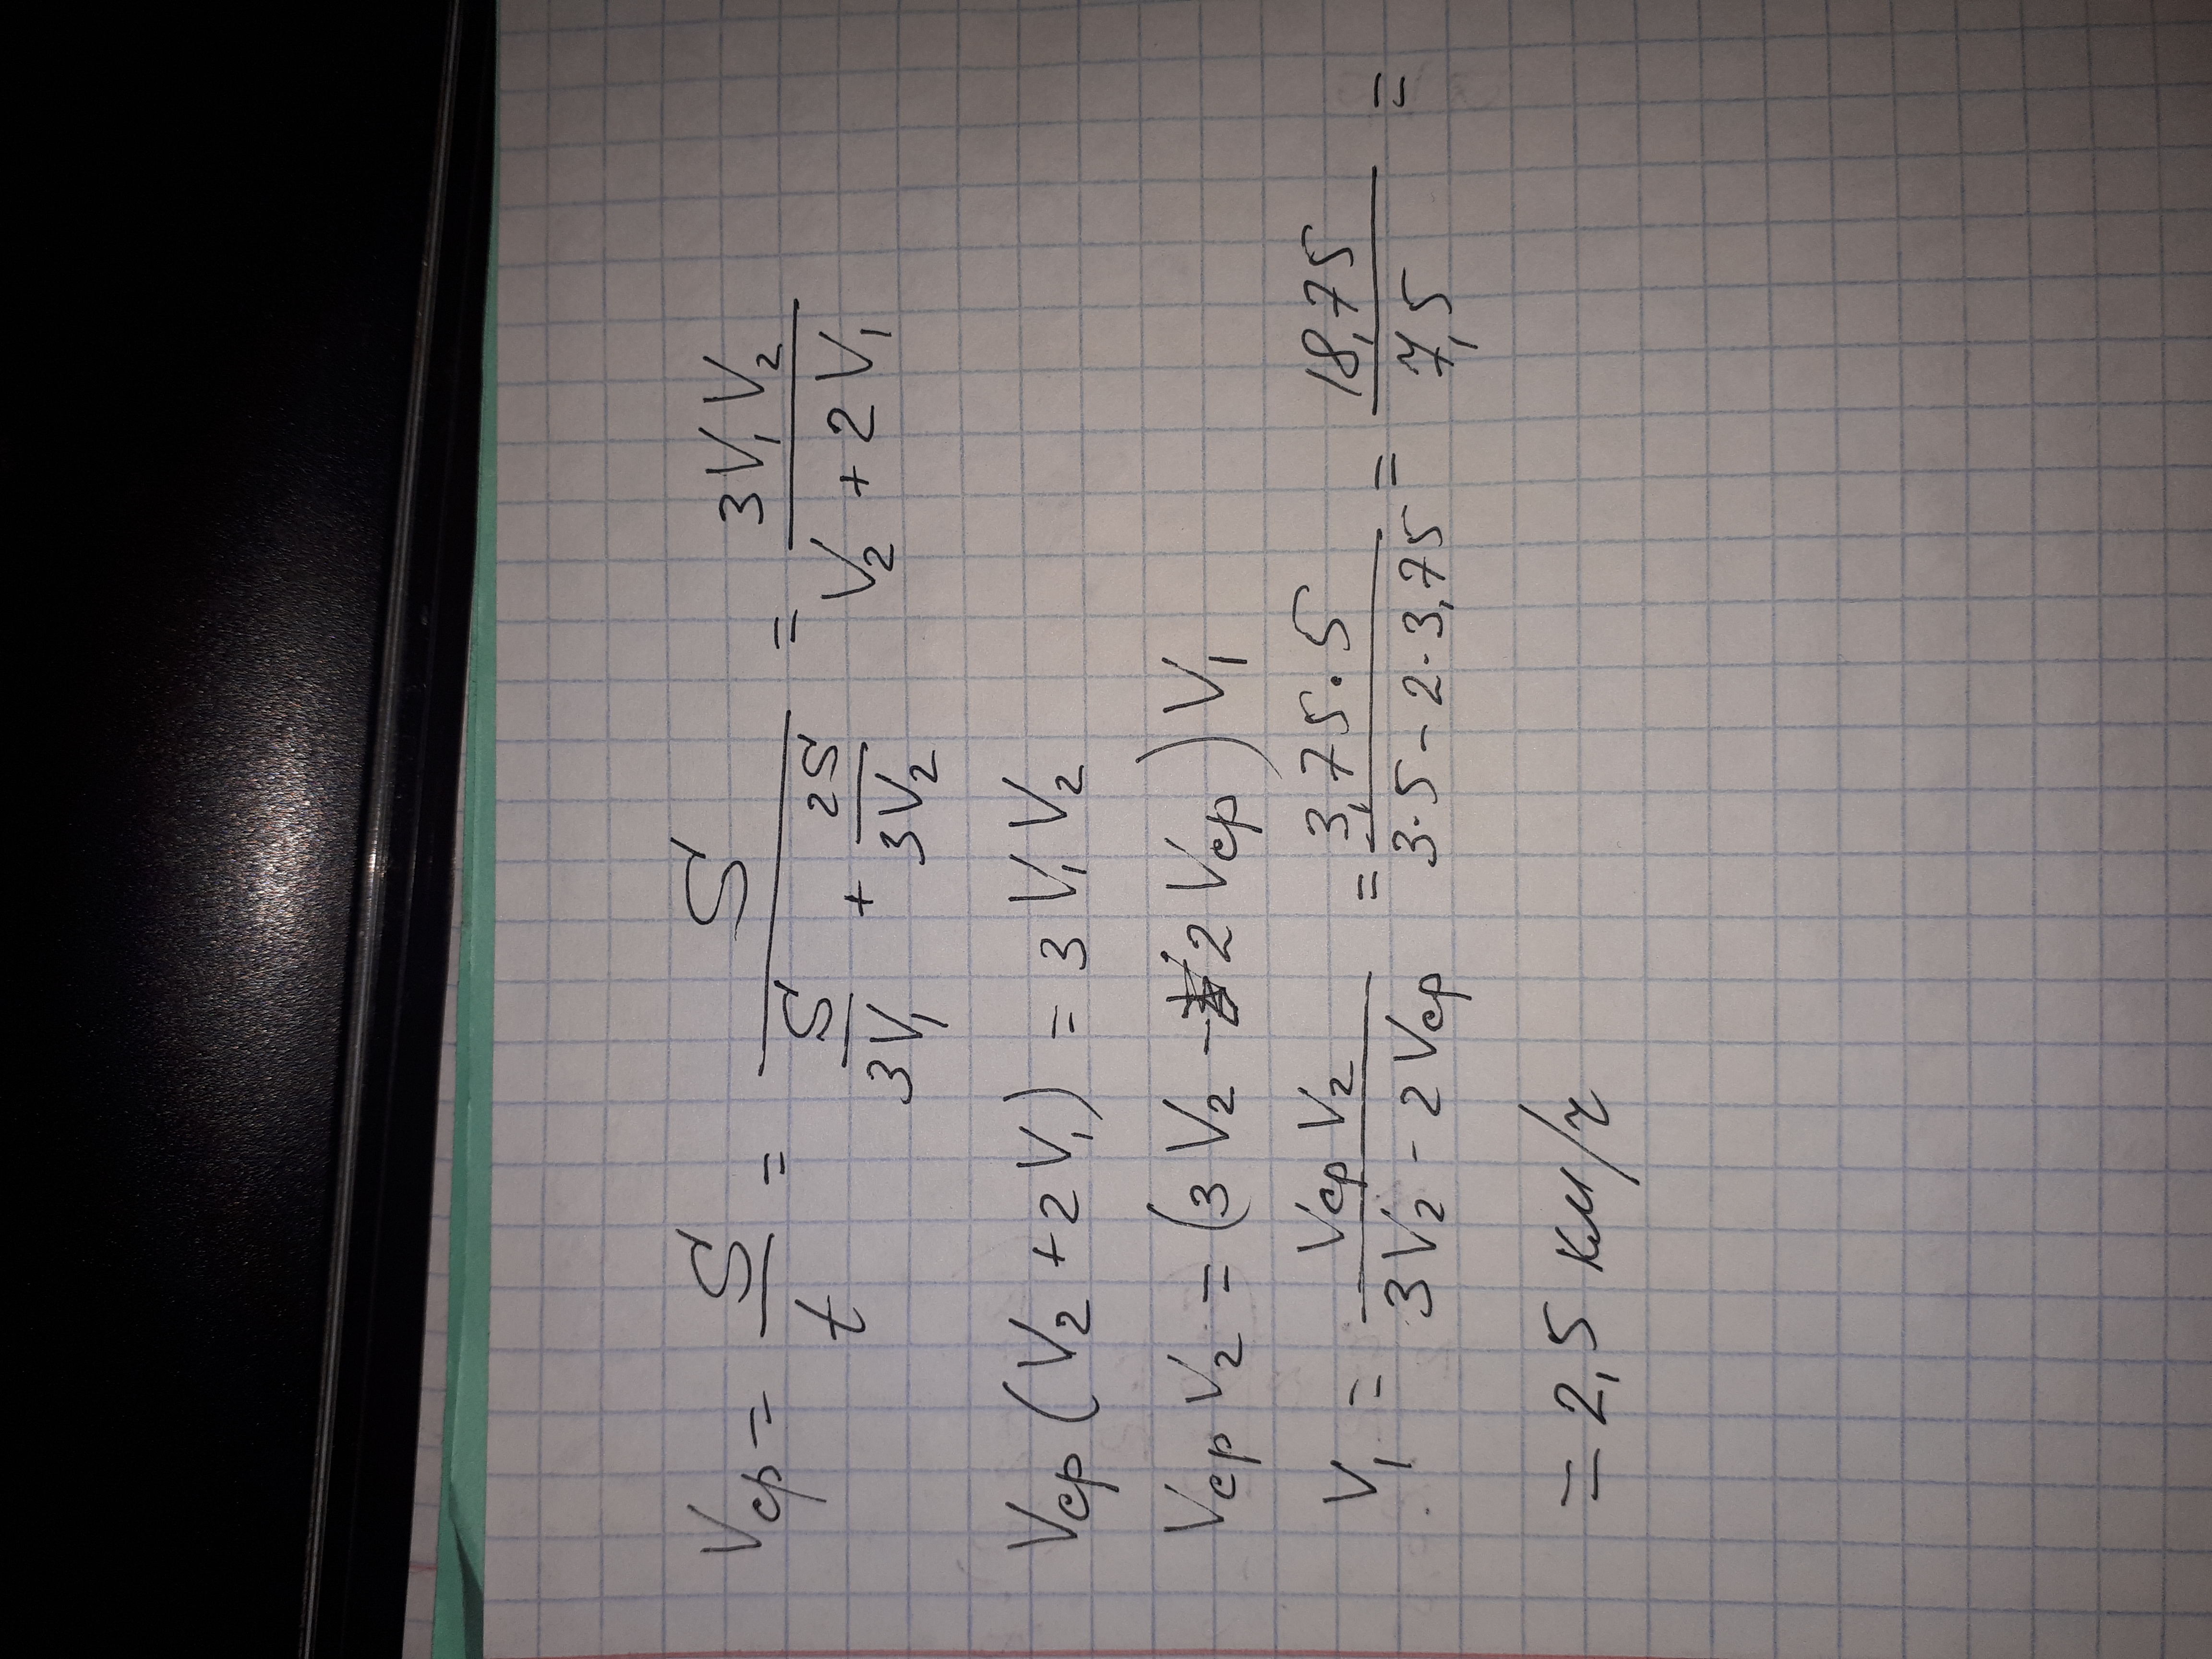 Vср = S/t = S/(S/3V₁ + 2S/3V₂) = 3V₁V₂/(V₂ + 2V₁)
Vср (V₂ + 2V₁) = 3V₁V₂
Vср V₂ = (3V₂ - 2Vср)V₁
V₁ = Vср V₂/(3V₂ - 2Vср) = 3,75·5/(3·5 - 2·3,75) = 18,75/7,5 =
= 2,5 км/ч